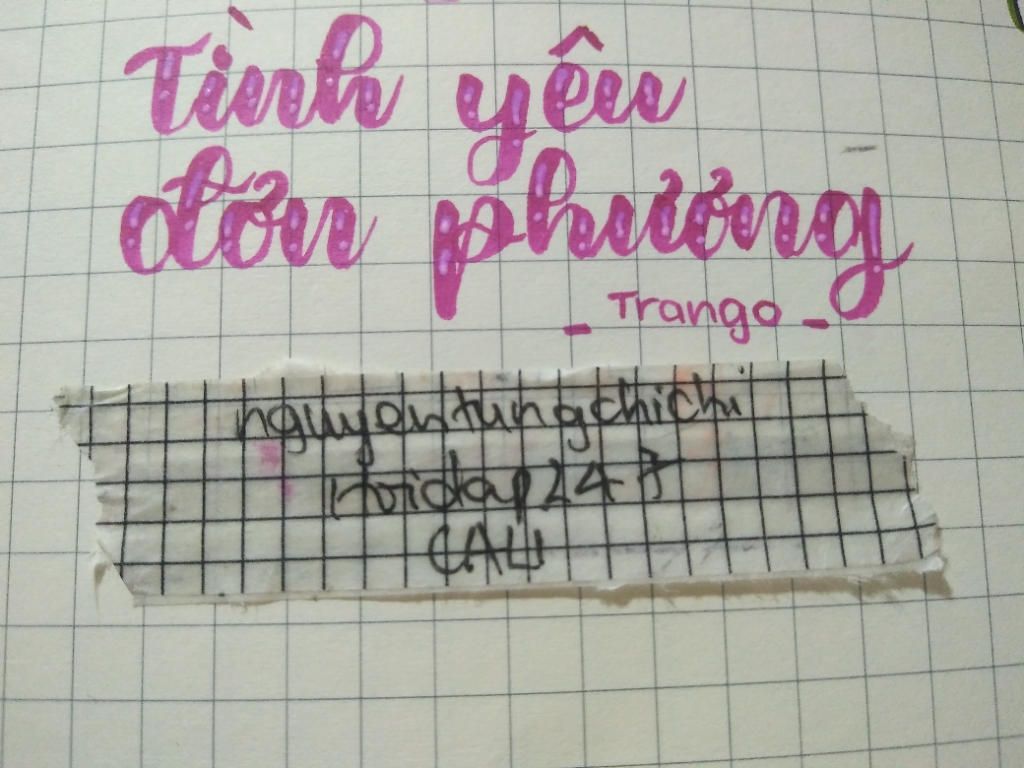 Tình yêu
đơn phương
_ Trango _
nguyentungchichi
Hoidap247
CALI